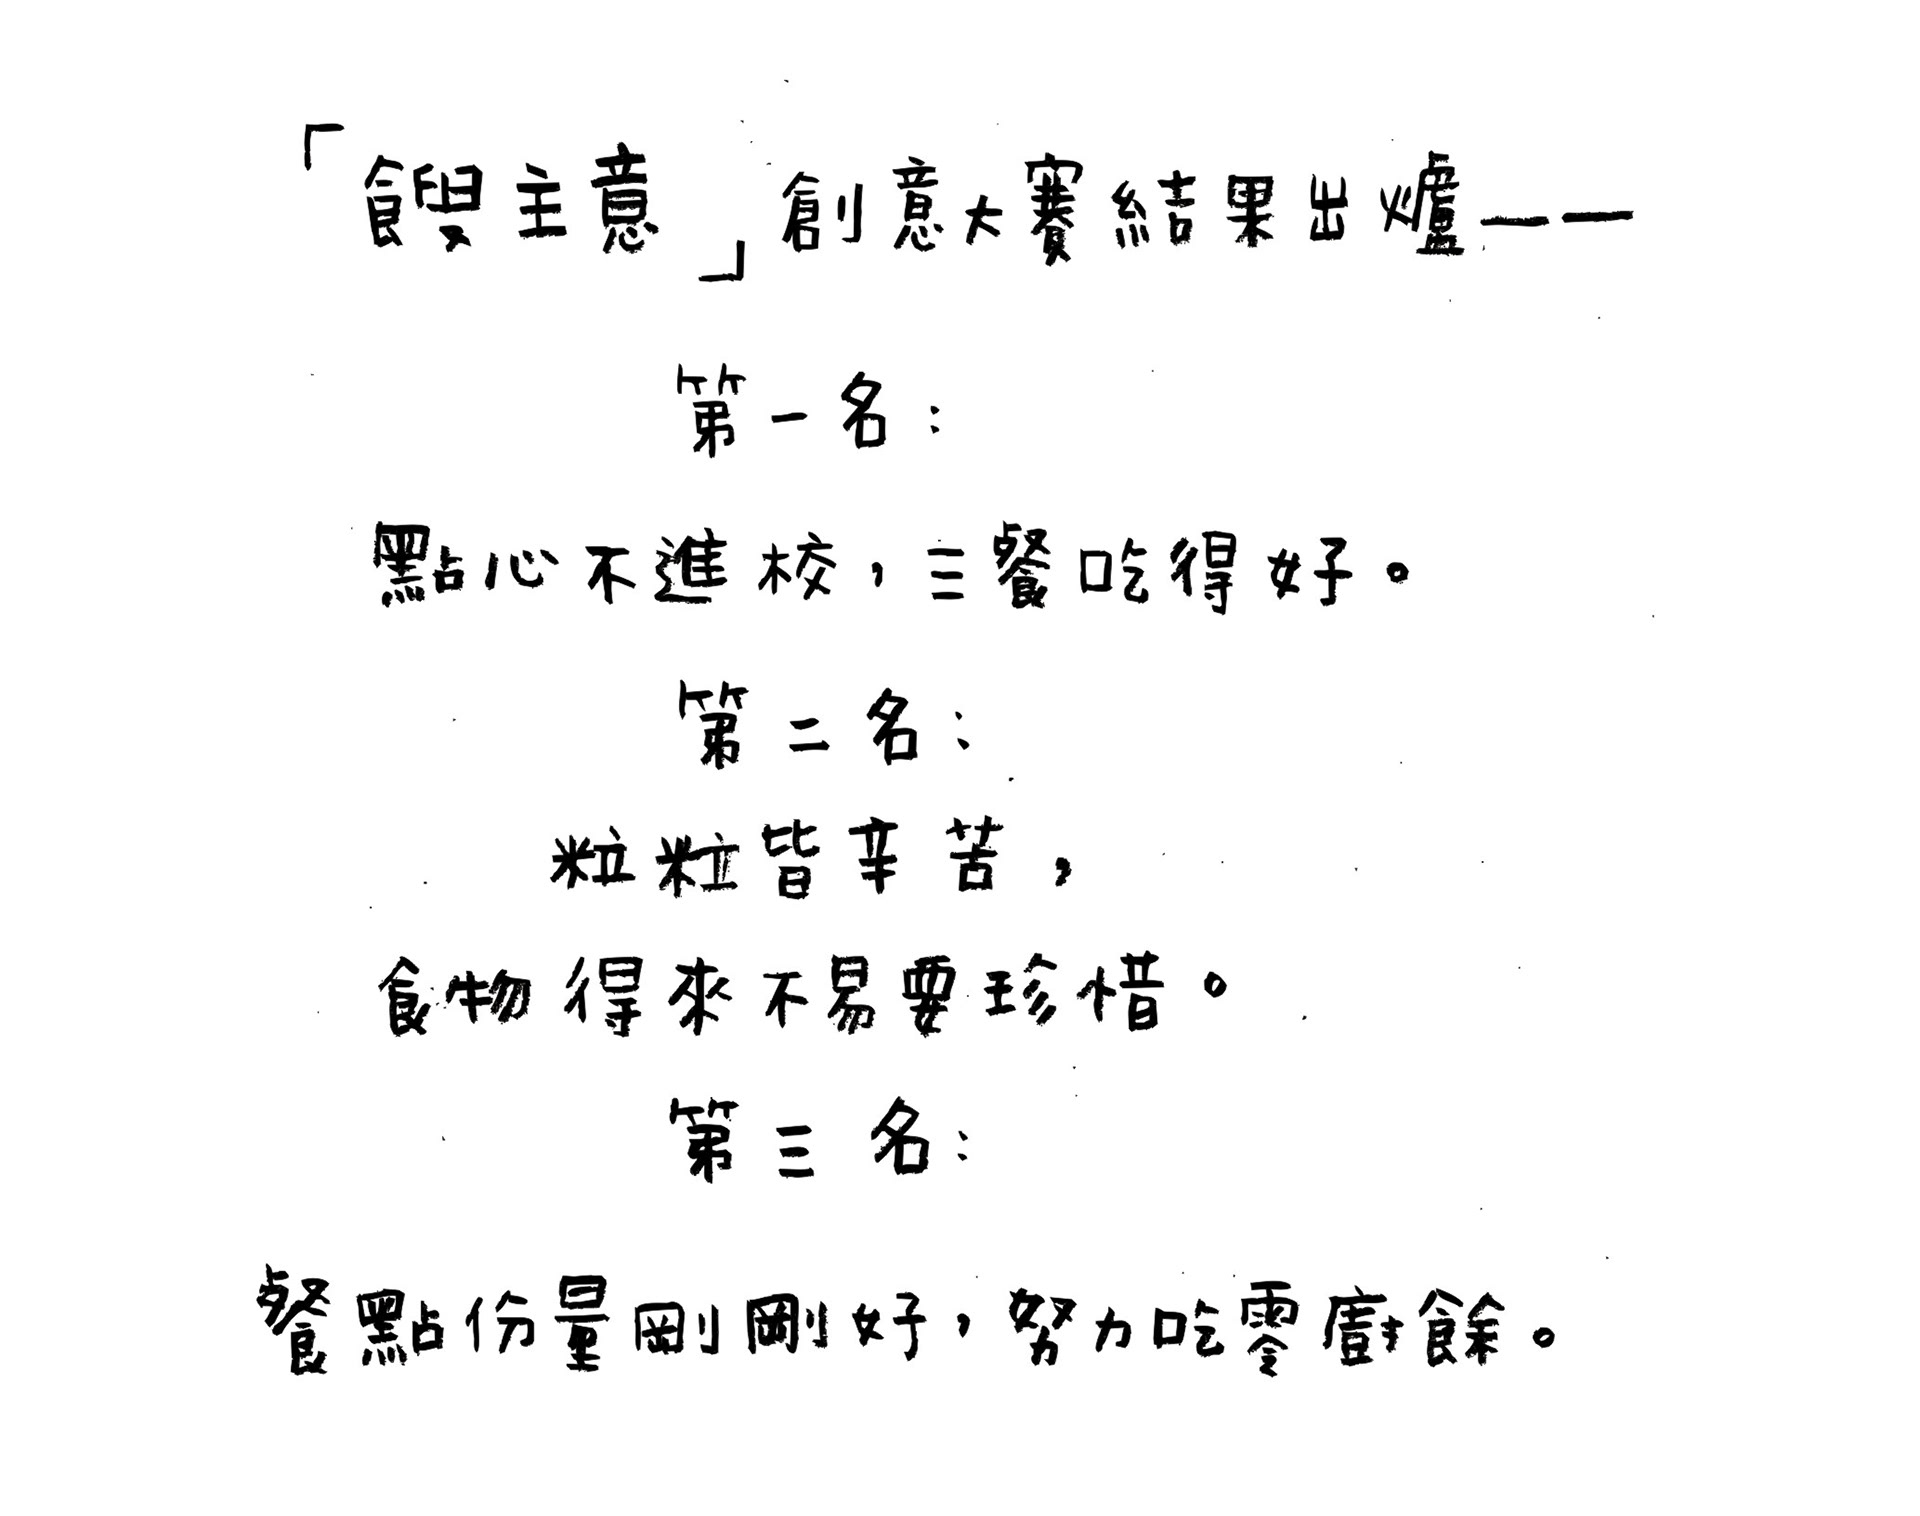 「餿主意」創意大賽結果出爐——
第一名：
點心不進校，三餐吃得好。
第二名：
粒粒皆辛苦，
食物得來不易要珍惜。
第三名：
餐點份量剛剛好，努力吃零廚餘。